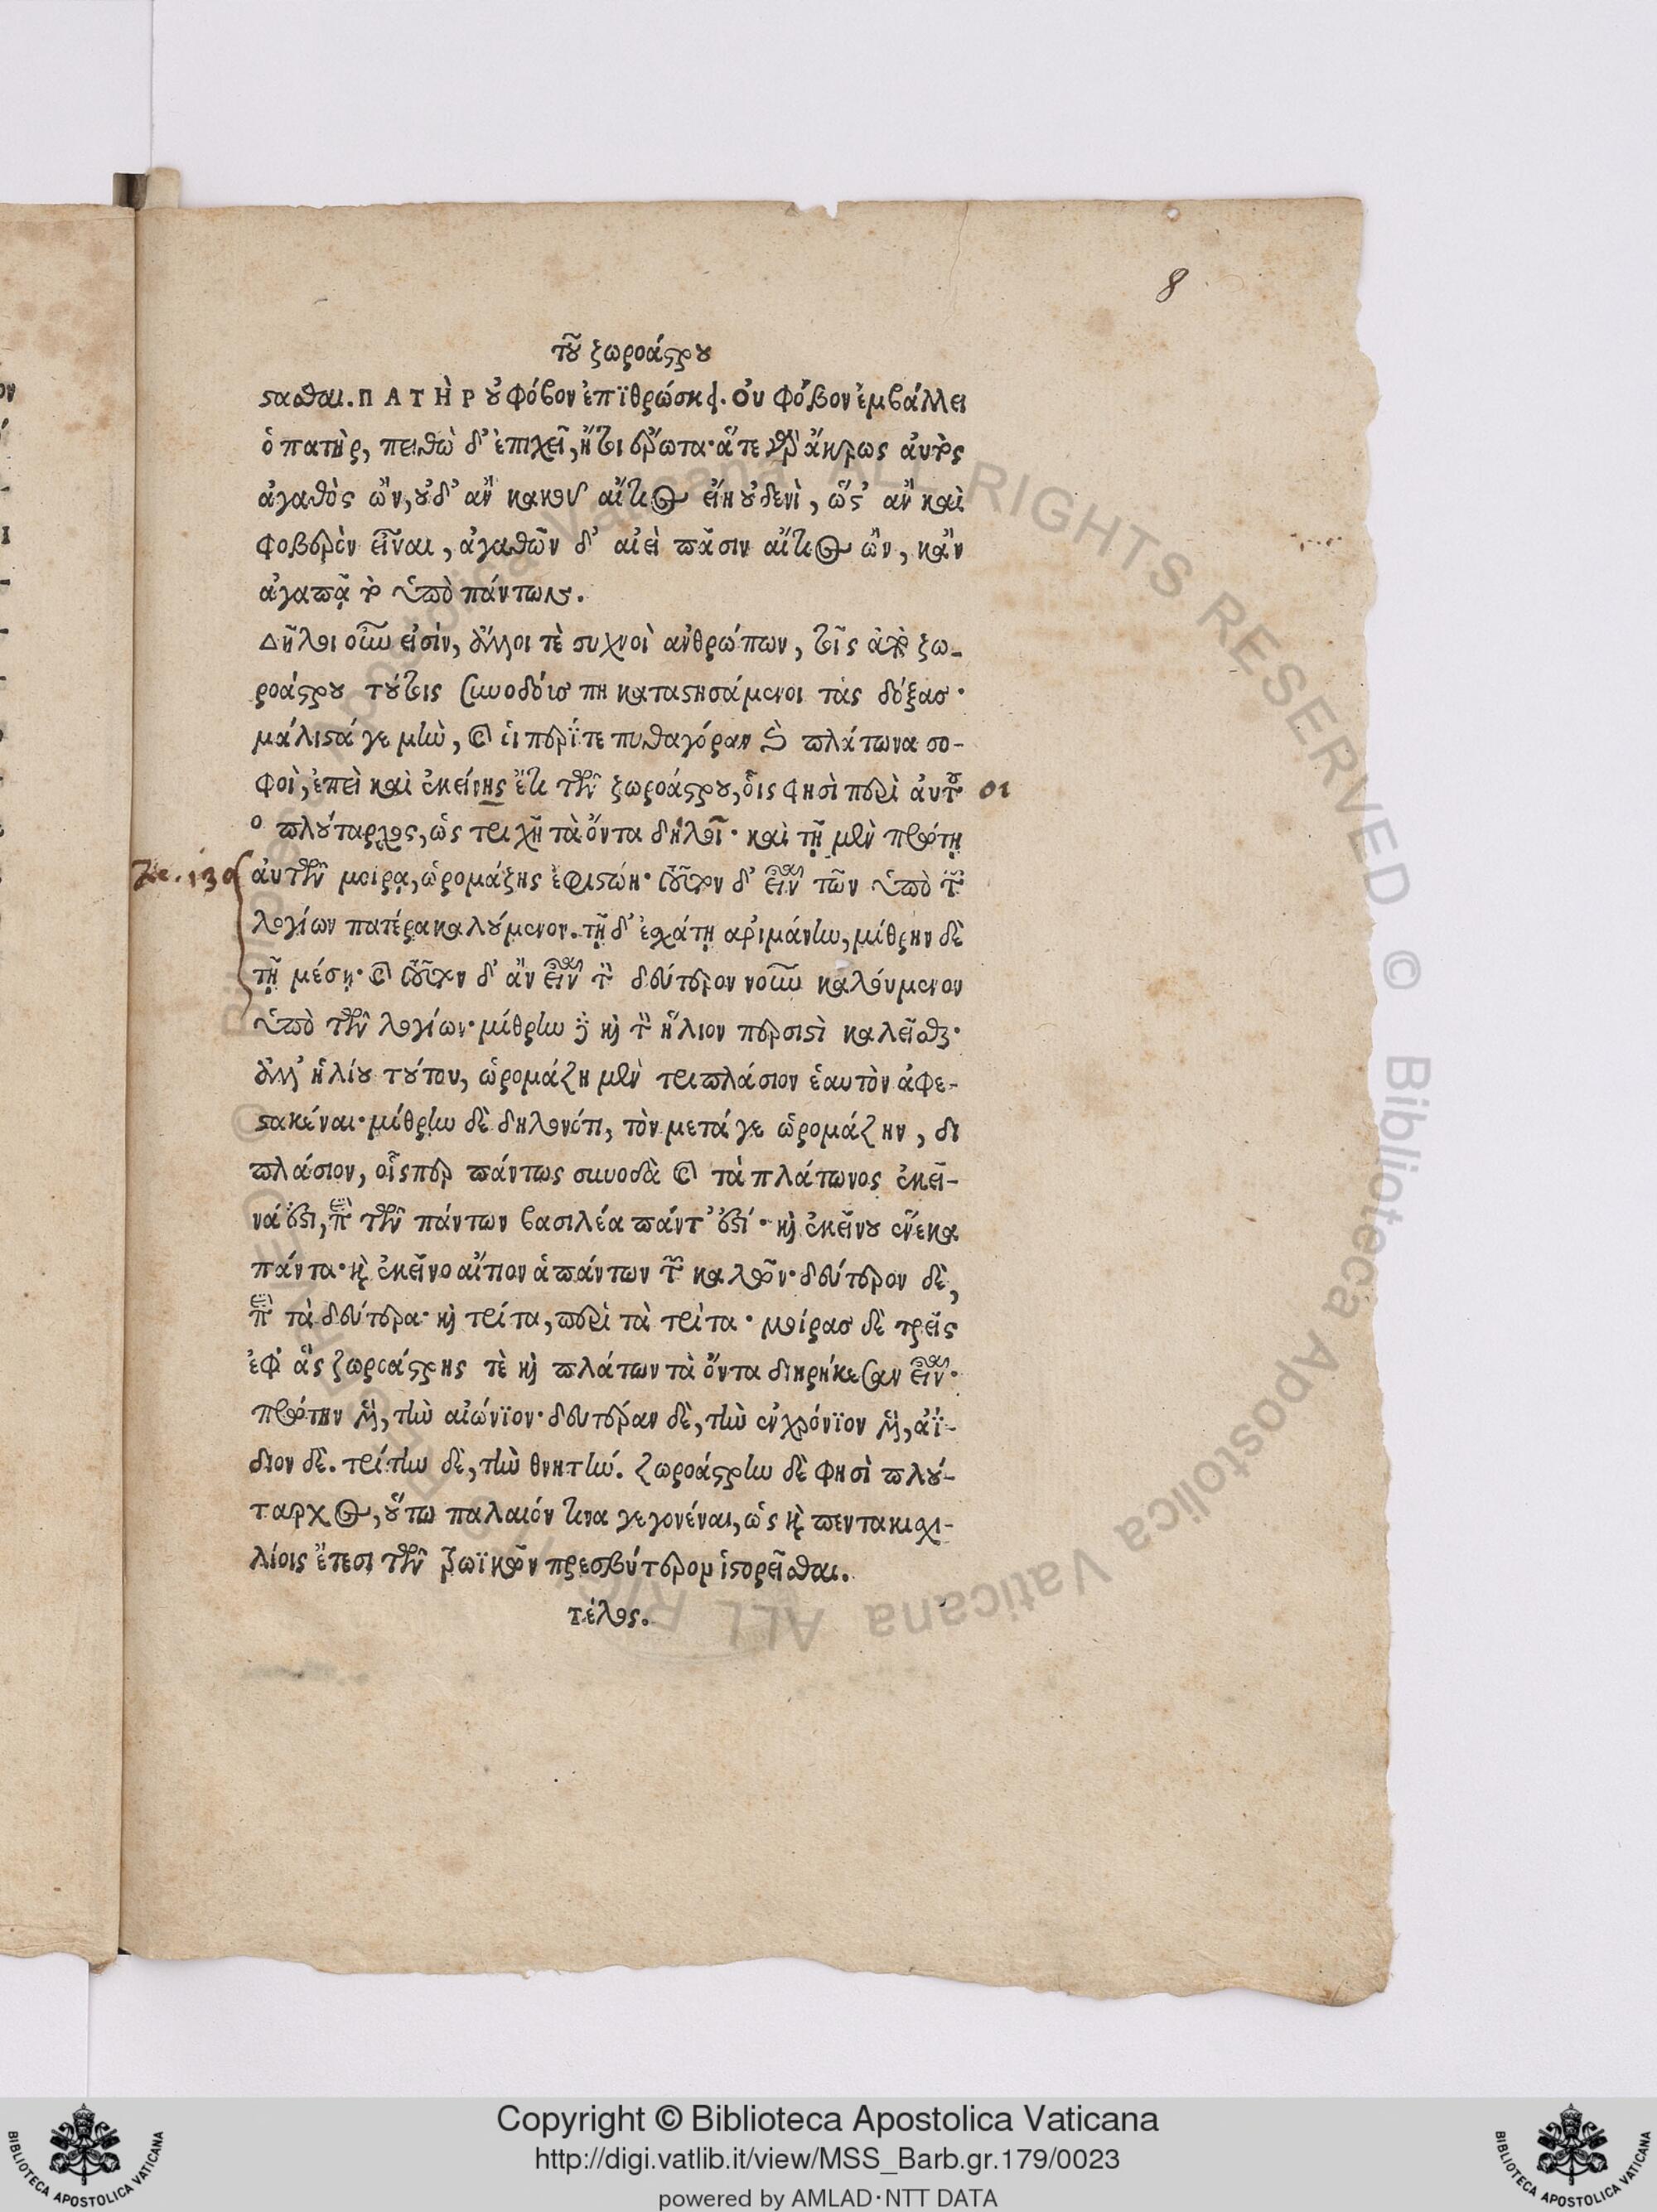 8
τοῦ ζωροάστρου
σασθαι. ΠΑΤῊΡ οὐ φόβον ἐπϊθρώσκει. Οὐ φόβον ἐμβάλλει
ὁ πατὴρ, πειθὼ δ' ἐπιχεῖ, ἤτοι ἔρωτα· ἅτε γὰρ ἄκρως αὐτὸς
ἀγαθὸς ὢν, οὐδ' ἂν κακοῦ αἴτιος εἴη οὐδενὶ, ὥστ' ἂν καὶ
φοβερὸν εἶναι, ἀγαθῶν δ' αἰεὶ πᾶσιν αἴτιος ὢν, κἂν
ἀγαπῷτο ὑπὸ πάντων.
Δῆλοι οὖν εἰσὶν, ἄλλοι τὲ συχνοὶ ἀνθρώπων, τοῖς ἀπὸ ζω-
ροάστρου τούτοις συνοδόισ πη καταστησάμενοι τὰς δόξασ·
μάλιστά γε μὴν, καὶ ὁι περΐτε πυθαγόραν καὶ πλάτωνα σο-
φοὶ, ἐπεὶ καὶ ἐκείνης ἔτι τῶν ζωροάστρου, οἷς φησὶ περὶ αὐτοῦ οι
ὁ πλούταρχος, ὡς τριχῆ τὰ ὄντα δηλοῖ· καὶ τῇ μὲν πρώτῃ
αὐτῶν μοίρᾳ, ὡρομάζης ἐφιστώη· τοῦτον δ' εἶναι τῶν ὑπὸ τῶν
λογίων πατέρα καλούμενον. τῇ δ' ἐχάτῃ αρἰμάνην, μίθρην δὲ
τῇ μέσῃ· καὶ τοῦτον δ' ἂν εἶναι τὸν δεύτερον νοῦν καλούμενον
ὑπὸ τῶν λογίων· μίθρην γὰρ καὶ τὸν ἥλιον περσιστὶ καλεῖσθαι·
ἀλλ' ἡλίου τούτου, ὡρομάζη μὲν τριπλάσιον ἑαυτὸν ἀφε-
στακέναι· μίθρην δὲ δηλονότι, τὸν μετά γε ὡρομάζην, δι
πλάσιον, οἷσπερ πάντως συνοδὰ καὶ τὰ πλάτωνος ἐκεῖ-
νά ἐστι, περὶ τῶν πάντων βασιλέα πάντ' ἐστί· καὶ ἐκείνου ἕνεκα
πάντα· καὶ ἐκεῖνο αἴτιον ἁπάντων τῶν καλῶν· δεύτερον δὲ,
περὶ τὰ δεύτερα· καὶ τρίτα, περὶ τὰ τρίτα· μοίρασ δὲ τρεῖς
ἐφ' ἃς ζωροάστρης τὲ καὶ πλάτων τὰ ὄντα διῃρήκεσαν εἶναι·
πρώτην μὲν, τὴν αἰώνϊον· δευτέραν δὲ, τὴν ἐνχρόνϊον μὲν, ἀΐ-
διον δὲ. τρίτην δὲ, τὴν θνητήν. Ζωροάστρην δὲ φησὶ πλού-
ταρχος, οὕτω παλαιόν τινα γεγονέναι, ὡς καὶ πεντακιχι-
λίοις ἔτεσι τῶν τρωϊκῶν πρεσβύτερον ἱστορεῖσθαι.
τέλος.
Copyright © Biblioteca Apostolica Vaticana
http://digi.vatlib.it/view/MSS_Barb.gr.179/0023
powered by AMLAD·NTT DATA